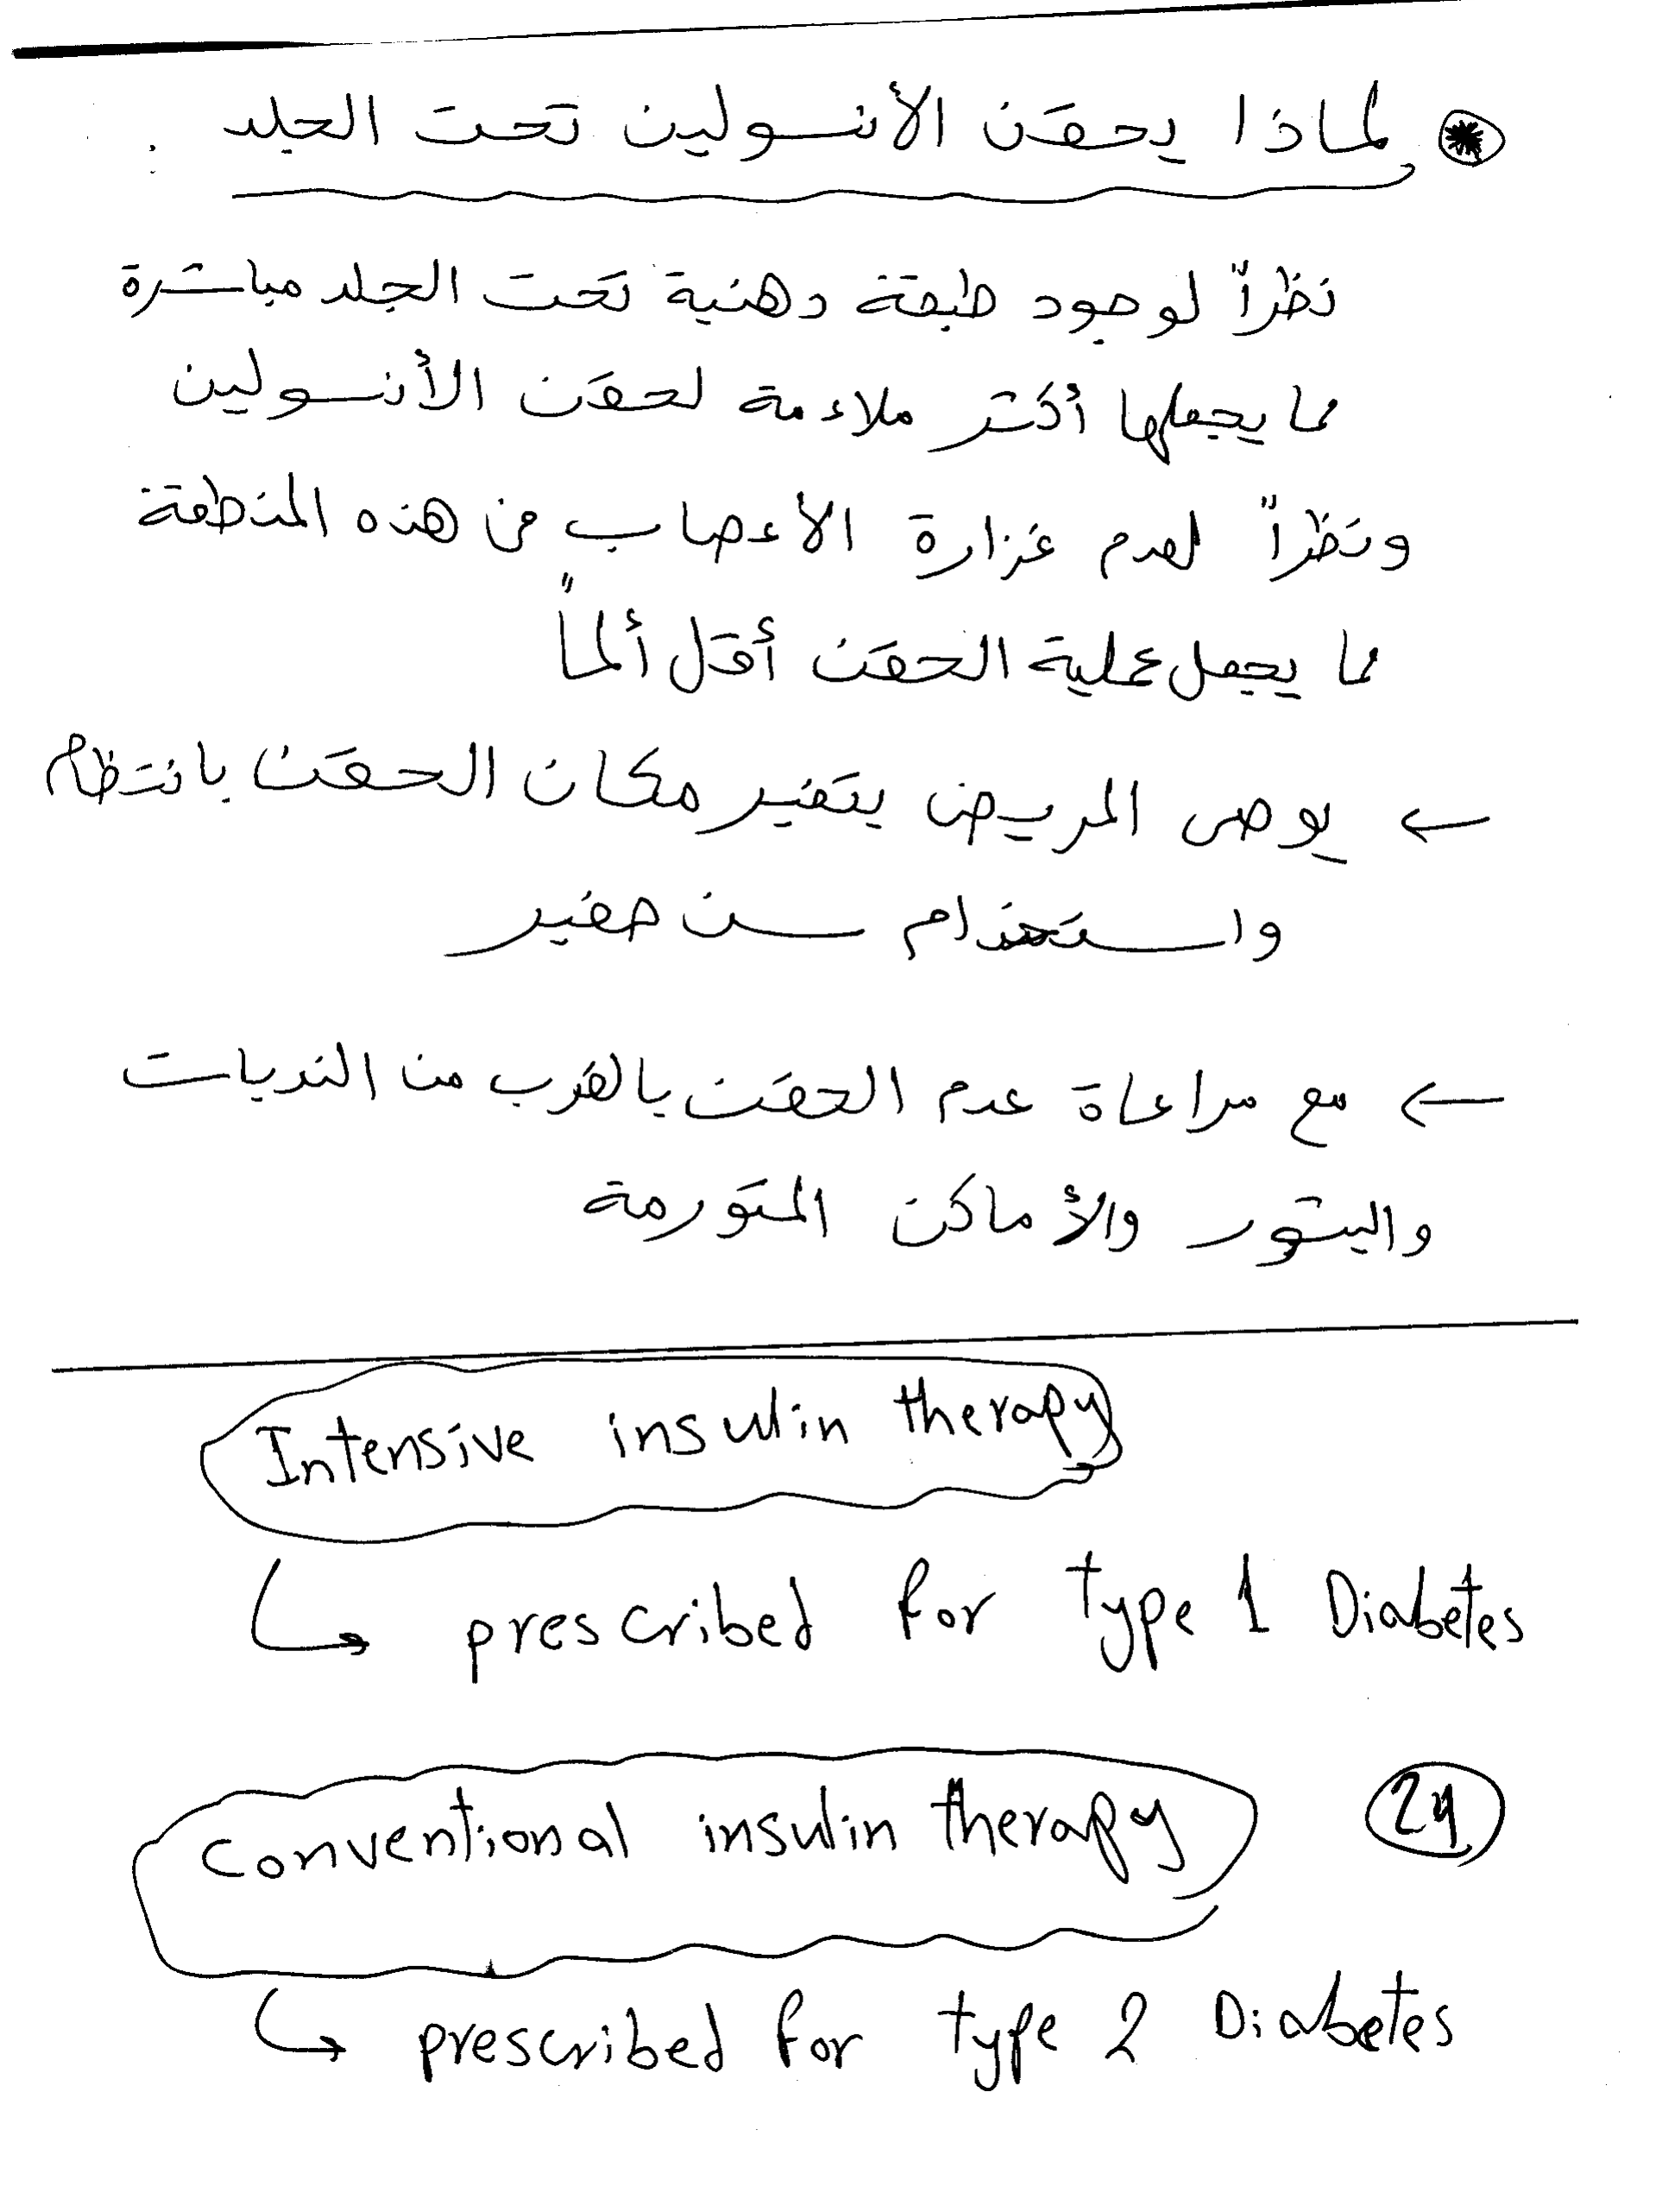 لماذا يحقن الأنسولين تحت الجلد :
نظراً لوجود طبقة دهنية تحت الجلد مباشرة
مما يجعلها أكثر ملاءمة لحقن الأنسولين
ونظراً لعدم غزارة الاعصاب في هذه المنطقة
مما يجعل عملية الحقن أقل ألماً
← يوصى المريض بتغير مكان الحقن بانتظام
واستخدام سن صغير
← مع مراعاة عدم الحقن بالقرب من الندبات
والبثور والأماكن المتورمة
Intensive insulin therapy
↳ prescribed for type 1 Diabetes
Conventional insulin therapy
24
↳ prescribed for type 2 Diabetes